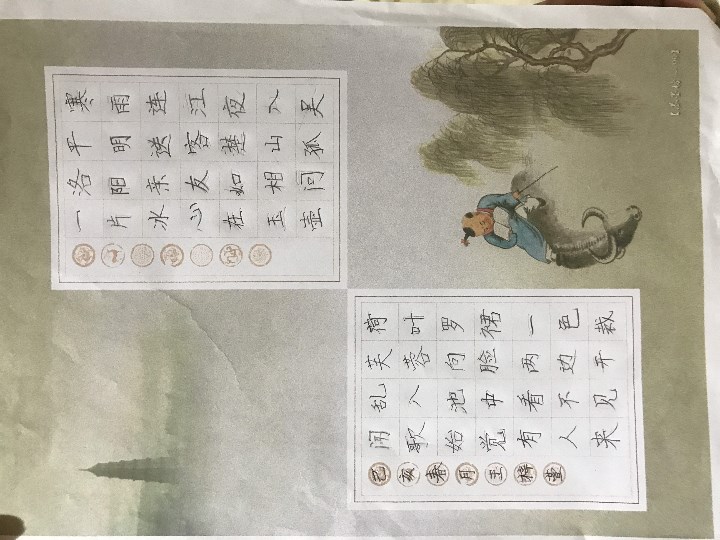 寒雨连江夜入吴
平明送客楚山孤
洛阳亲友如相问
一片冰心在玉壶
荷叶罗裙一色裁
芙蓉向脸两边开
乱入池中看不见
闻歌始觉有人来
己亥春月王梓萱